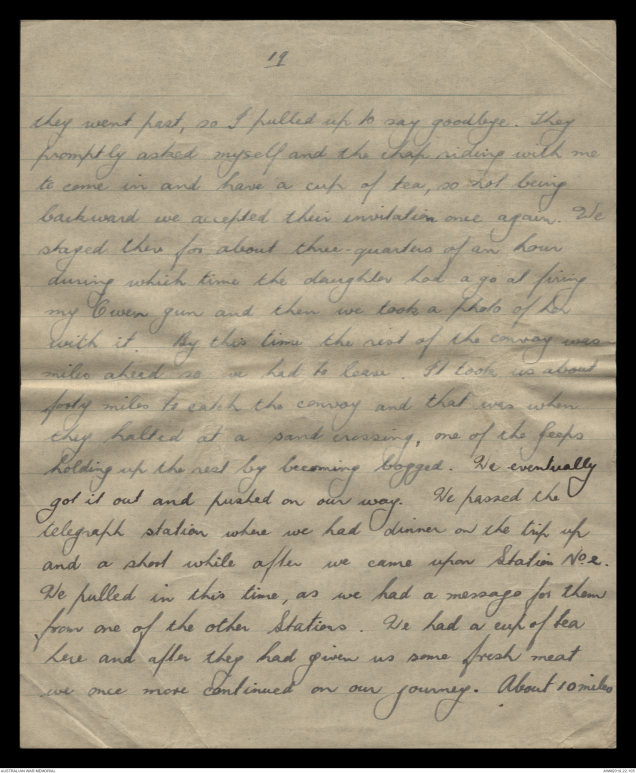 19
they went past, so I pulled up to say goodbye. They
promptly asked myself and the chap riding with me
to come in and have a cup of tea, so not being
backward we accepted their invitation once again. We
stayed there for about three-quarters of an hour
during which time the daughter had a go at firing
my Owen gun and then we took a photo of her
with it. By this time the rest of the convoy was
miles ahead so we had to leave. It took us about
forty miles to catch the convoy and that was when
they halted at a sand crossing, one of the Jeeps
holding up the rest by becoming bogged. We eventually
got it out and pushed on our way. We passed the
telegraph station where we had dinner on the trip up
and a short while after we came upon Station No 2.
We pulled in this time, as we had a message for them
from one of the other Stations. We had a cup of tea
here and after they had given us some fresh meat
we once more continued on our journey. About 10 miles
AUSTRALIAN WAR MEMORIAL